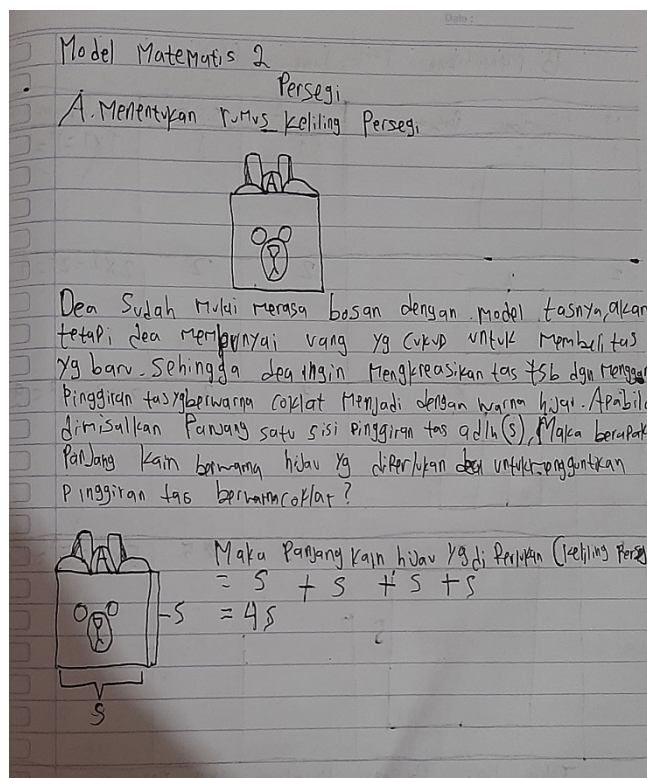 Model Matematis 2
Persegi
A. Menentukan rumus keliling Persegi
Dea Sudah Mulai Merasa bosan dengan Model tasnya, akan
tetapi dea mempunyai uang yg Cukup untuk Membeli tas
yg baru. Sehingga dea ingin Mengkreasikan tas tsb dgn
Pinggiran tas yg berwarna coklat Menjadi dengan warna hijau. Apabil
dimisalkan Panjang satu sisi pinggiran tas adlh (s), Maka berapak
Panjang kain berwarna hijau yg diperlukan untuk
Pinggiran tas berwarna coklat?
Maka Panjang kain hijau yg di Perlukan (keliling Perseg
= S + S + S + S
-S = 4S
S